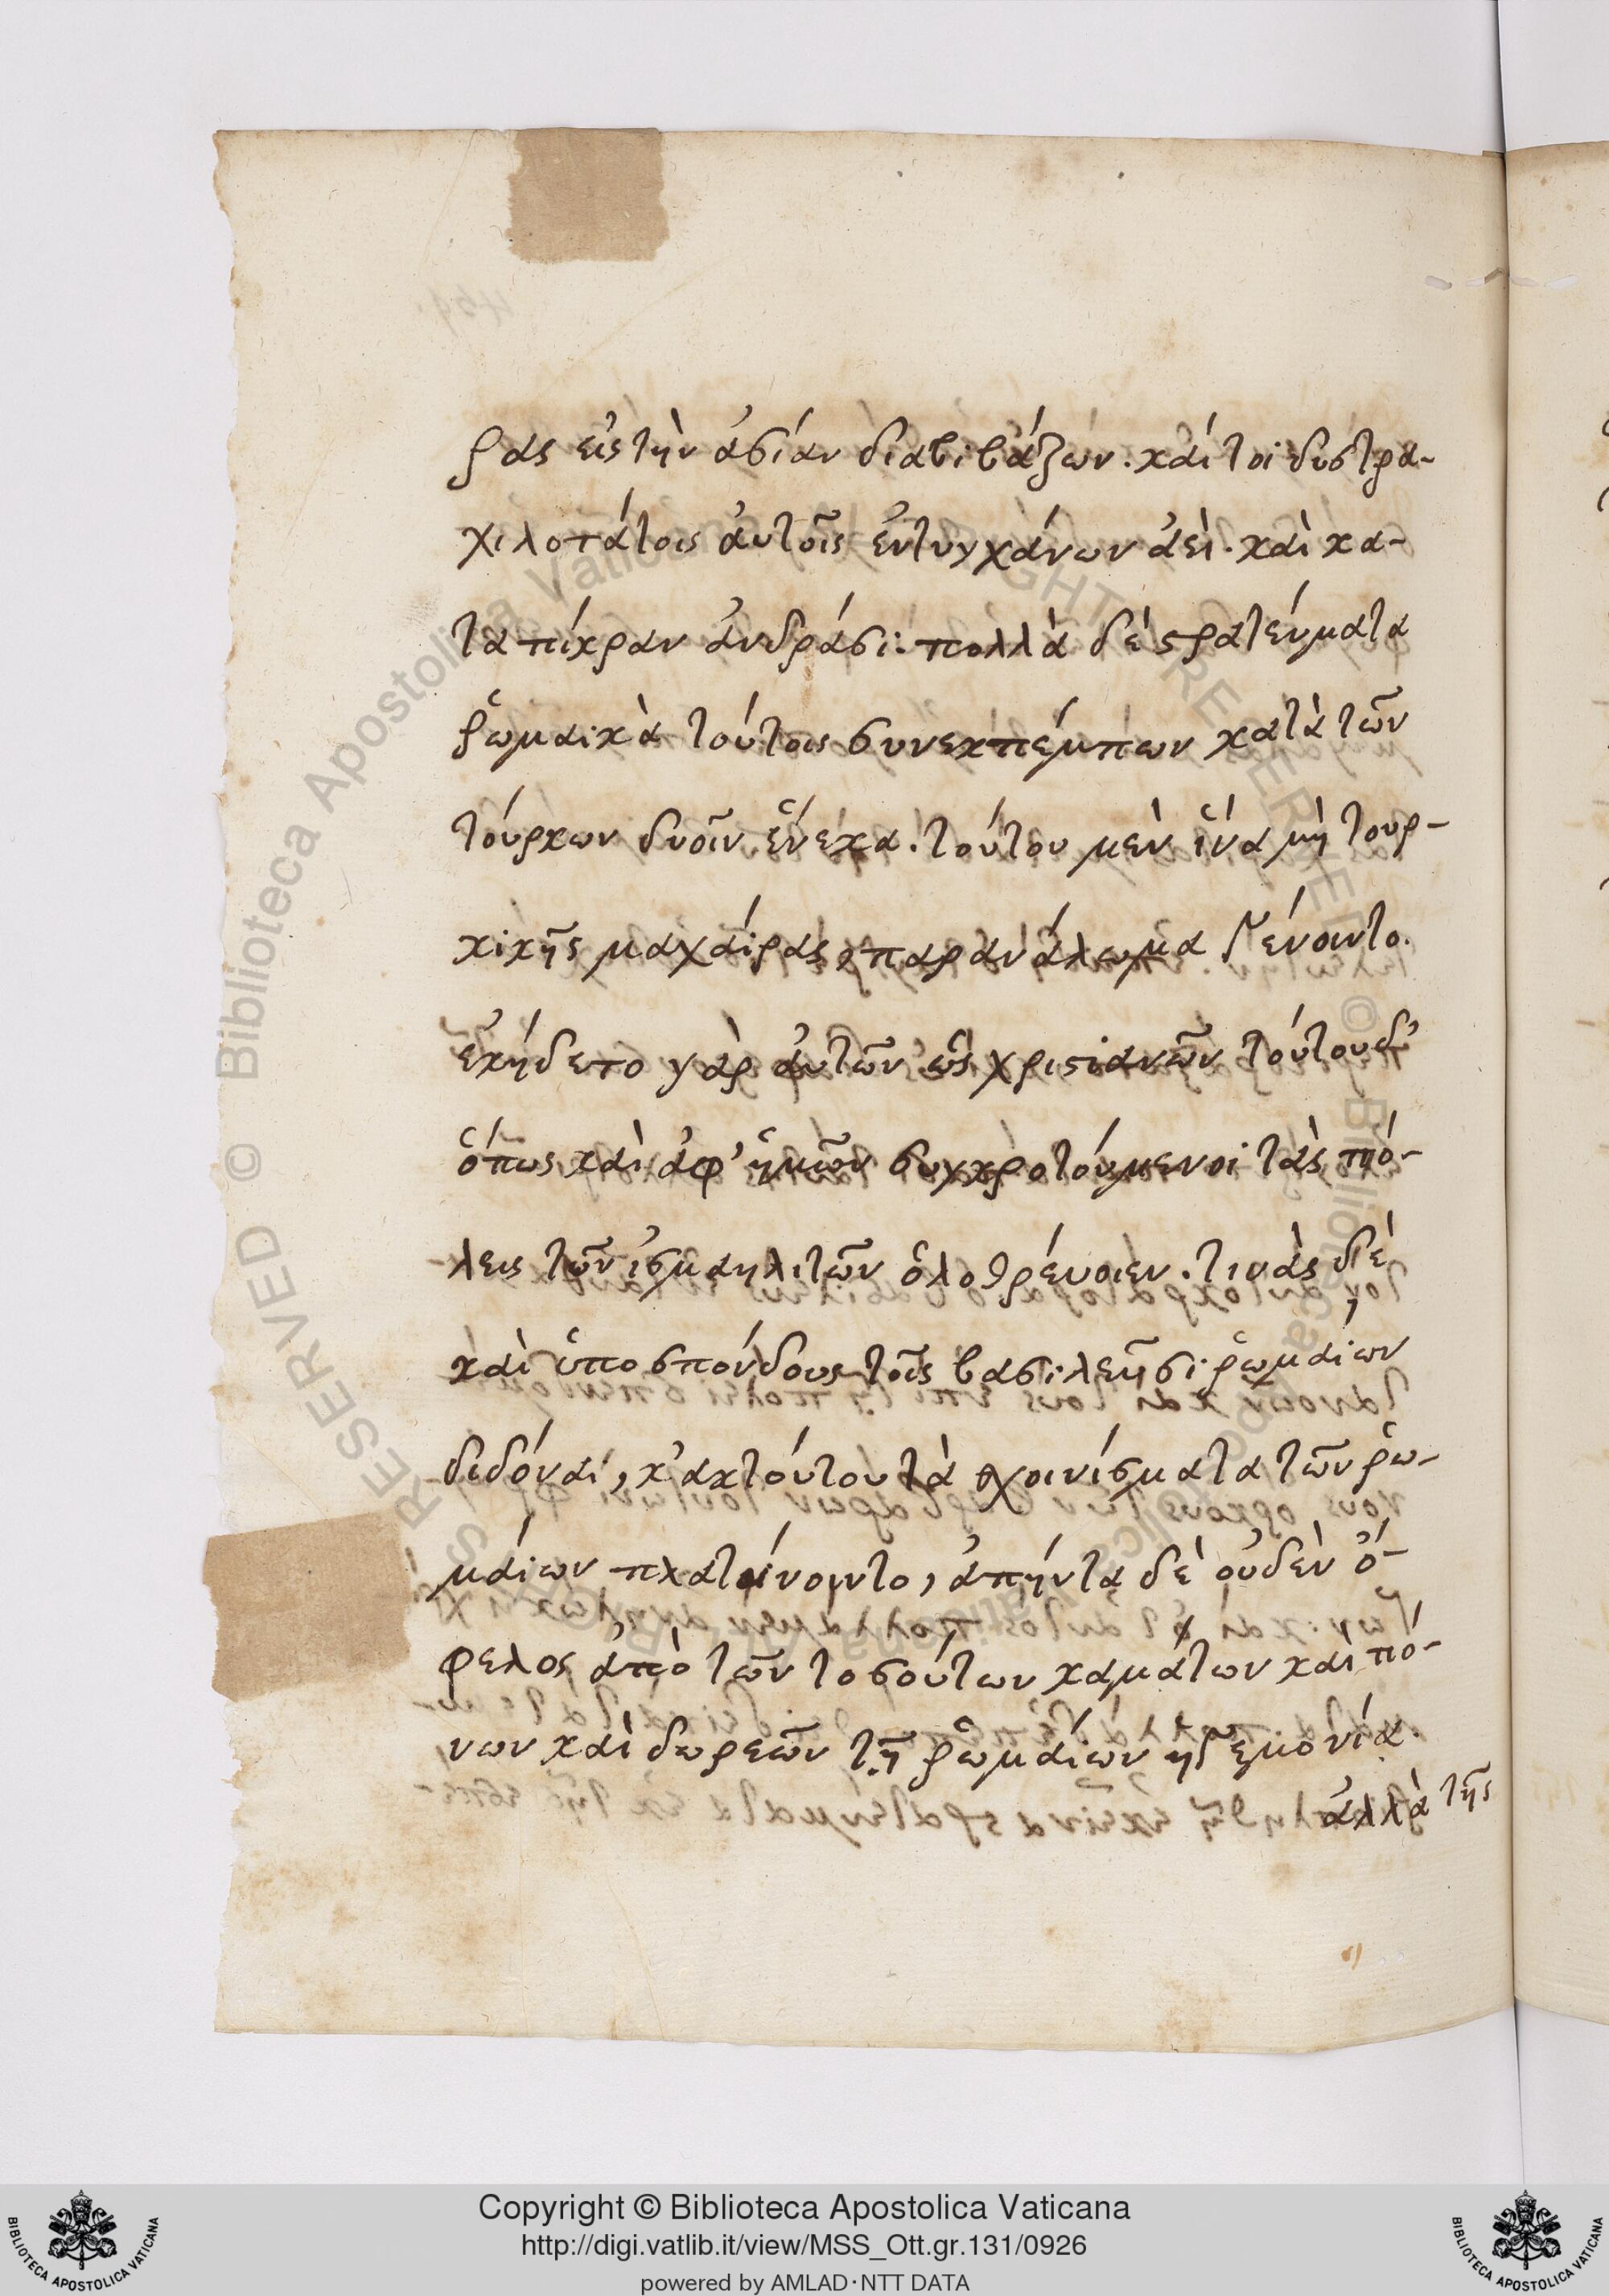 ρας εἰς τὴν ἀσίαν διαβιβάζων. καίτοι δυστρα-
χιλοτάτοις ἀυτοῖς ἐντυγχάνων ἀεὶ. καὶ κα-
ταπίκραν ἀνδράσι. πολλὰ δὲ στρατεύματα
ῥωμαικὰ τούτοις συνεκπέμπων κατὰ τῶν
τούρκων δυοῖν ἕνεκα. τούτου μὲν ἵνα μὴ τουρ-
κικῆς μαχαίρας, παρανάλωμα γένοιντο.
ἐκήδετο γὰρ ἀυτῶν ὡς χριστιανῶν τούτου δ'
ὅπως καὶ ἀφ' ἡμῶν συγκροτούμενοι τὰς πό-
λεις τῶν ἰσμαηλιτῶν ὀλοθρέυοιεν. τινὰς δὲ
καὶ ὑποσπόνδους τοῖς βασιλεῦσι ῥωμαίων
διδόναι, κ'ακ τούτου τὰ σχοινίσματα τῶν ῥω-
μαίων πλατύνοιντο, ἀπήντα δὲ οὐδὲν ὄ-
φελος ἀπὸ τῶν τοσούτων καμάτων καὶ πό-
νων καὶ δωρεῶν τῇ ῥωμαίων ηγεμονία.
ἀλλὰ τῆς
Copyright © Biblioteca Apostolica Vaticana
http://digi.vatlib.it/view/MSS_Ott.gr.131/0926
powered by AMLAD·NTT DATA
BIBLIOTECA APOSTOLICA VATICANA
BIBLIOTECA APOSTOLICA VATICANA